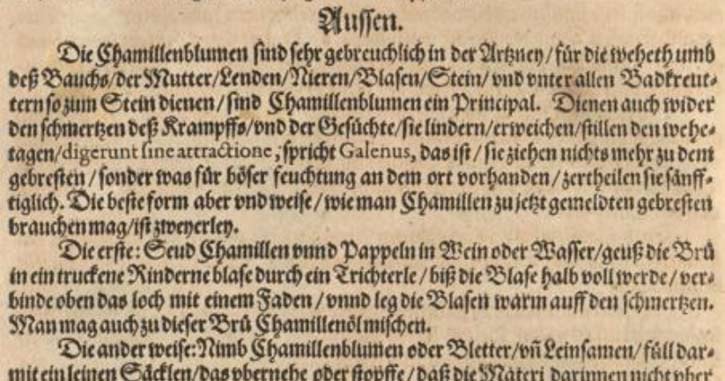 Aussen.
Die Chamillenblumen sind sehr gebreuchlich in der Artzney/für die weheth umb
deß Bauchs/der Mutter/Lenden/Nieren/Blasen/Stein/vnd vnter allen Badkreut-
tern so zum Stein dienen/sind Chamillenblumen ein Principal. Dienen auch wider
den schmertzen deß Krampffs/vnd der Gesüchte/sie lindern/erweichen/stillen den wehe-
tagen/digerunt sine attractione, spricht Galenus, das ist/sie ziehen nichts mehr zu dem
gebresten/sonder was für böser feuchtung an dem ort vorhanden/zertheilen sie sänff-
tiglich. Die beste form aber vnd weise/wie man Chamillen zu jetzt gemeldten gebresten
brauchen mag/ist zweyerley.
Die erste: Seud Chamillen vnnd Pappeln in Wein oder Wasser/geuß die Brü
in ein truckene Rinderne blase durch ein Trichterle/biß die Blase halb voll werde/ver-
binde oben das loch mit einem Faden/vnnd leg die Blasen warm auff den schmertzen.
Man mag auch zu dieser Brü Chamillenöl mischen.
Die ander weise: Nimb Chamillenblumen oder Bletter/vñ Leinsamen/füll dar-
mit ein leinen Säcklen/das vbernehe oder stopffe/daß die Materi darinnen nicht vber